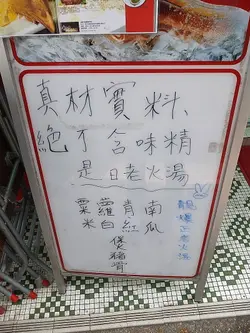 真材實料
絕不含味精
是日老火湯
南瓜
青紅
蘿白
粟米
煲豬骨
老火湯